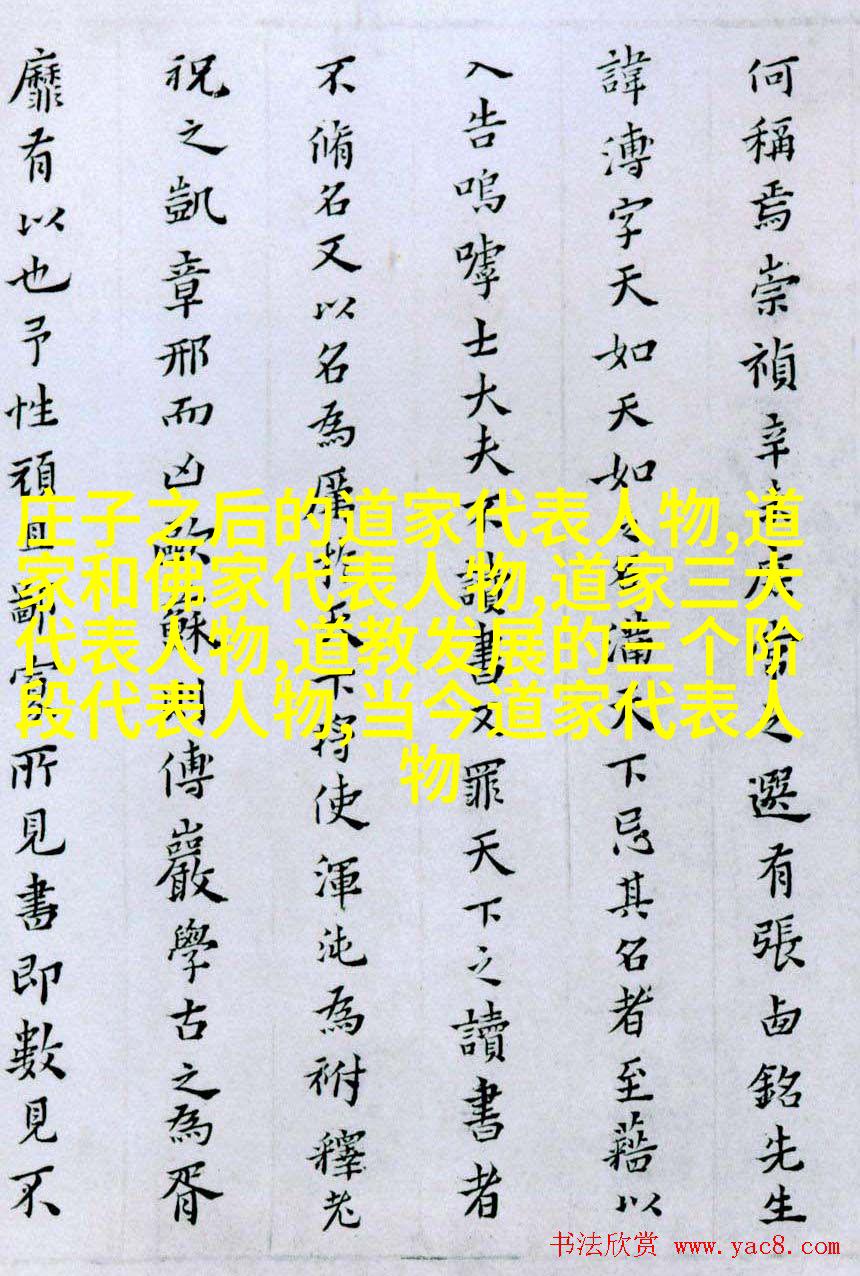 何稱焉崇禎辛未庶常之選有張卣銘先生
諱溥字天如天如之名滿天下忌其名者至藉以
入告嗚嘑士大夫不讀書又罪天下之讀書者
不脩名又以名為厲於天下將使渾沌為祔釋老
祝之凱章邢而凶歐蘇傅巖學古之為胥
靡有以也予性頑且鄙寡所見書即數見不
庄子之后的道家代表人物,道
家和佛家代表人物,道家三大
代表人物,道教发展的三个阶
段代表人物,当今道家代表人
物
书法欣赏 www.yac8.com